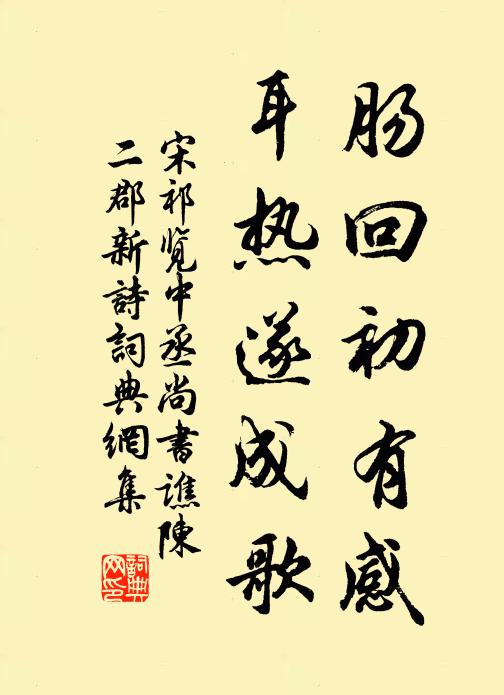 肠回初有感
耳热遂成歌
宋祁览中丞尚書谯陳
二郡新詩詞典網集
詞典
网印